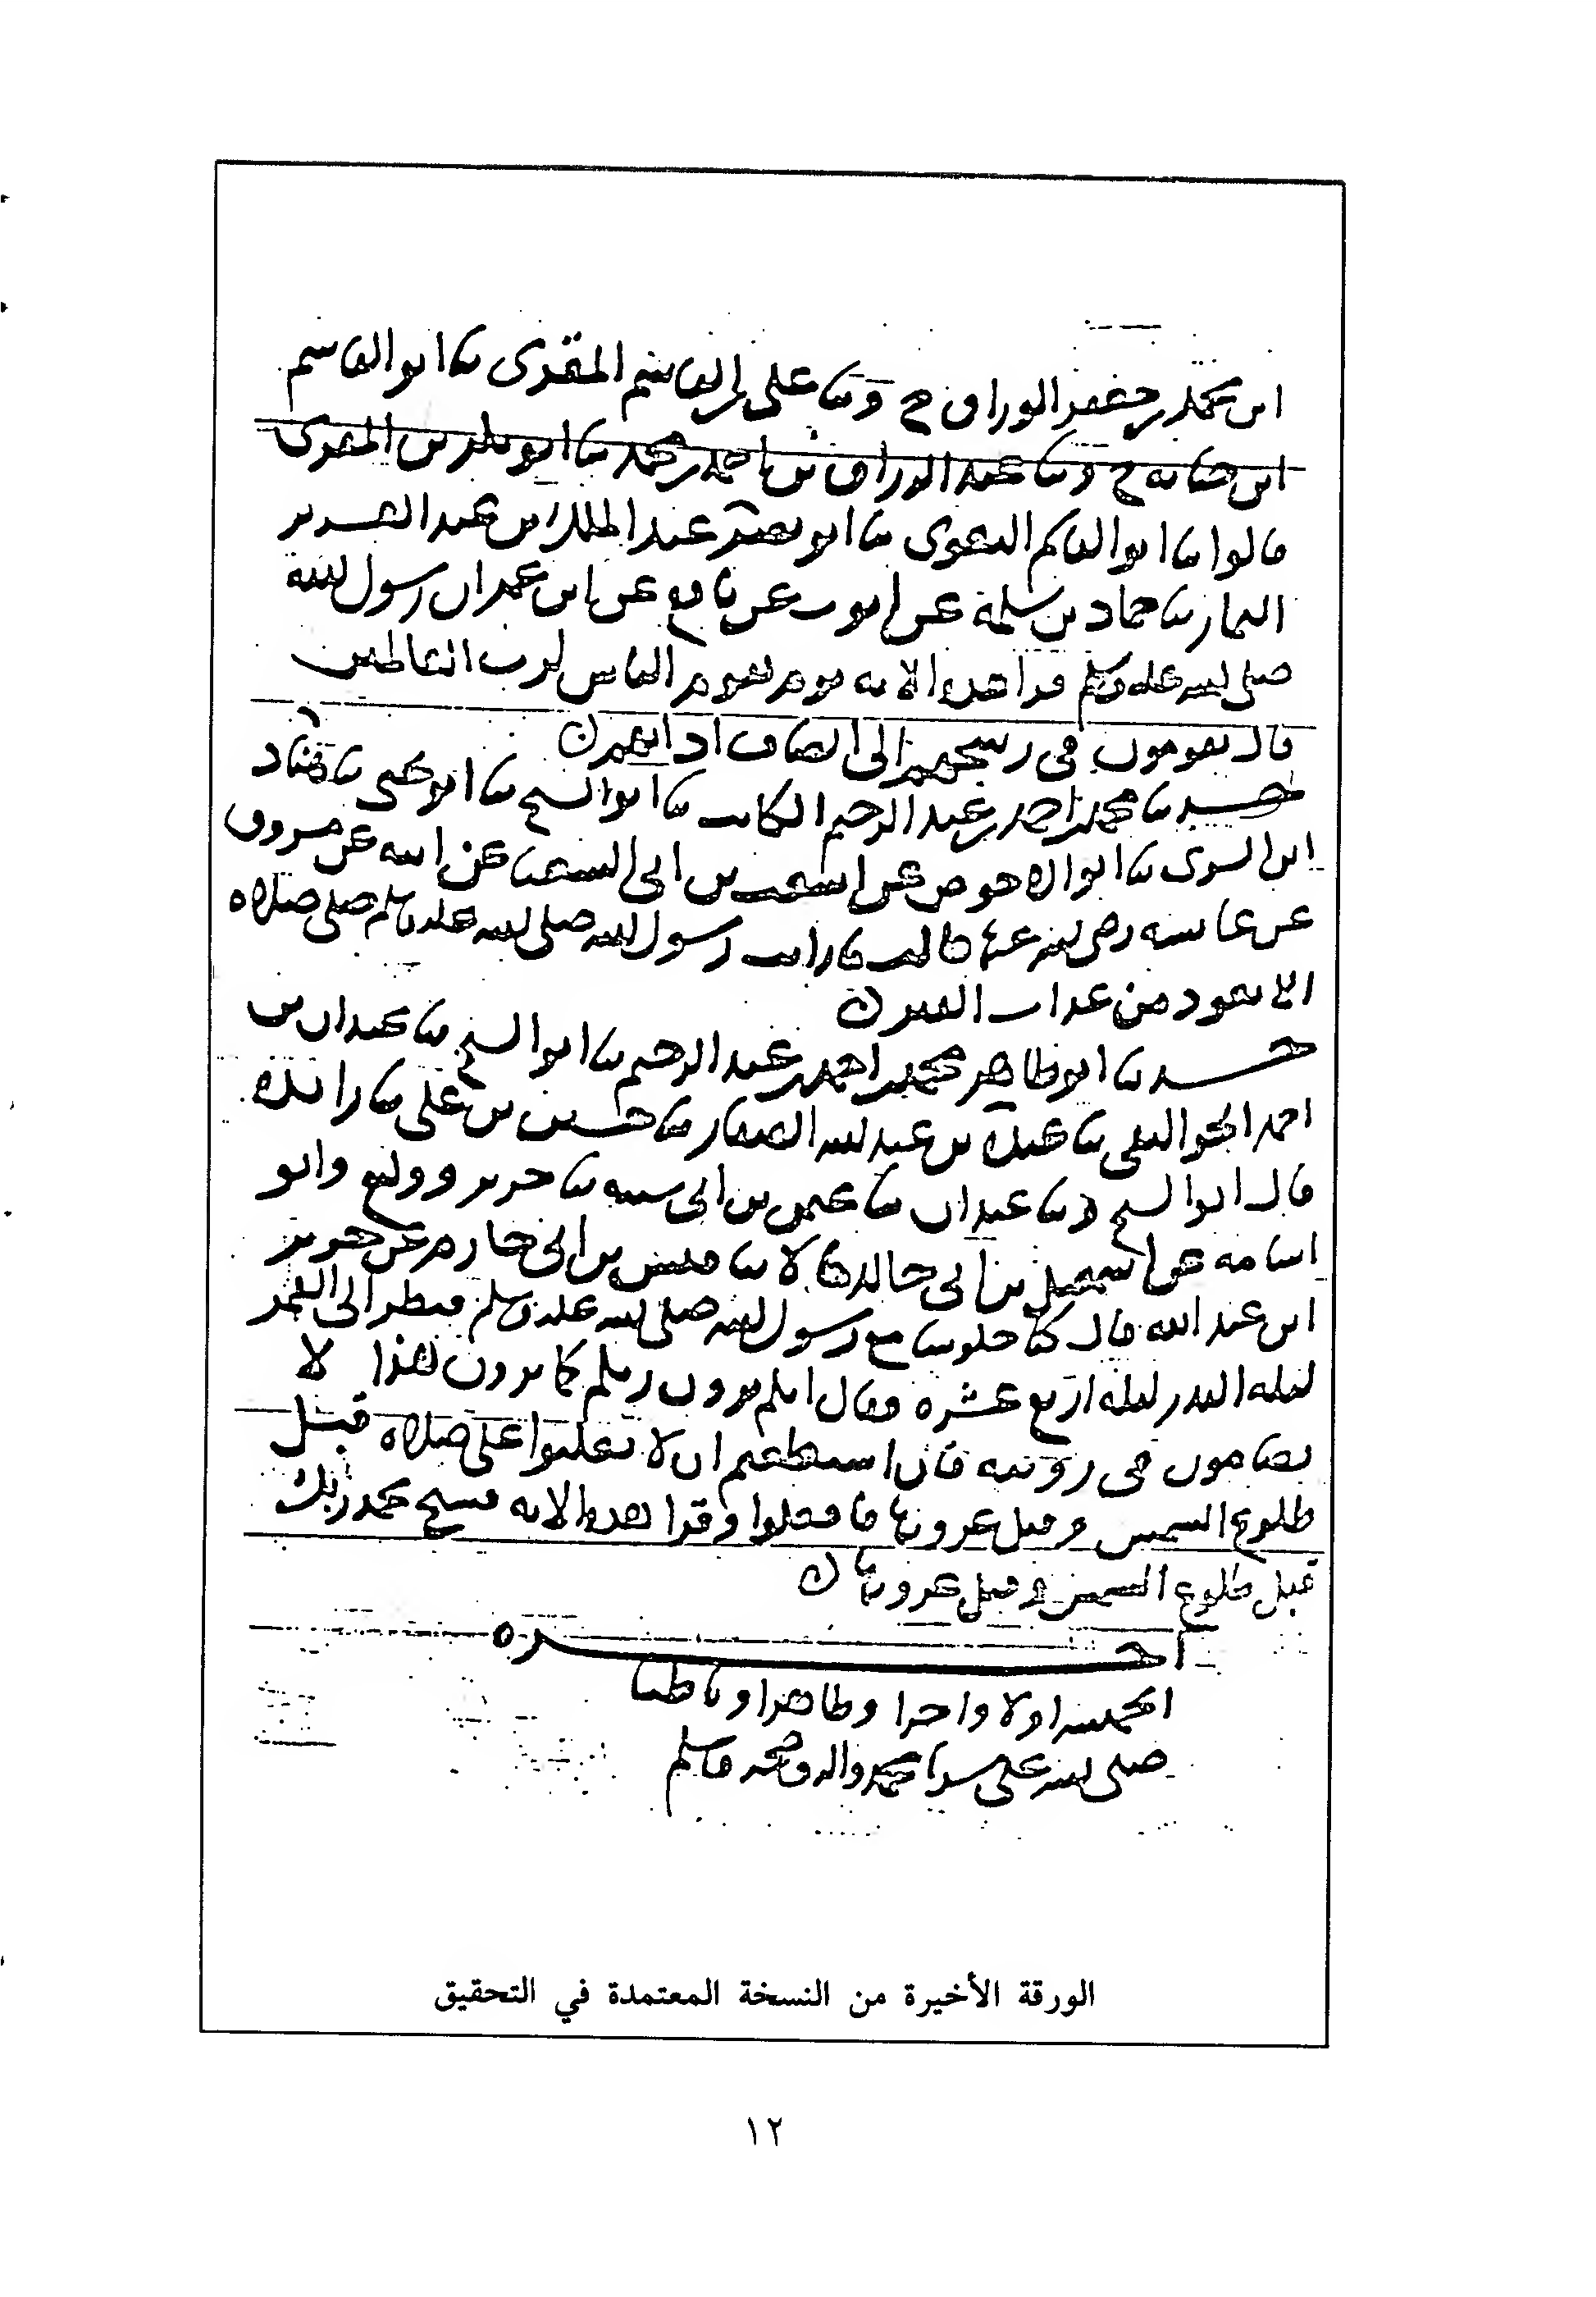 ابن محمد بن جعفر الوراق ح وثنا علي بن القاسم المقرى ثنا ابو القاسم
ابن حبابه ح وثنا عبد الرزاق بن احمد بن محمد ثنا ابو بكر بن المقرى
قالوا ثنا ابو القاسم البغوى ثنا ابو نصر عبد الملك بن عبد العزيز
التمار ثنا حماد بن سلمة عن ايوب عن نافع عن ابن عمر ان رسول الله
صلى الله عليه وسلم قرا هذه الاية يوم يقوم الناس لرب العالمين
قال يقومون في رشحهم الى انصاف اذانهم
حدثنا محمد بن احمد بن عبد الرحيم الكاتب ثنا ابو الشيخ ثنا ابو يحيى ثنا هناد
ابن السرى ثنا ابو الاحوص عن اشعث بن ابي الشعثا عن ابيه عن مسروق
عن عايشة رضي الله عنها قالت ما رايت رسول الله صلى الله عليه وسلم صلى صلاه
الا تعوذ من عذاب القبر
حدثنا ابو طاهر محمد بن احمد بن عبد الرحيم ثنا ابو الشيخ ثنا عبدان بن
احمد الجواليقي ثنا عبدة بن عبد الله الصفار ثنا حسين بن علي ثنا زائدة
قال ابو الشيخ وثنا عبدان ثنا عثمن بن ابي شيبه ثنا جرير ووكيع وابو
اسامة عن اسمعيل بن ابي خالد قالا ثنا قيس بن ابي حازم عن جرير
ابن عبد الله قال كنا جلوسا مع رسول الله صلى الله عليه وسلم فنظر الى القمر
ليلة البدر ليلة اربع عشرة فقال انكم ترون ربكم كما ترون هذا لا
تضامون في رويته فان استطعتم ان لا تغلبوا على صلاة قبل
طلوع الشمس وقبل غروبها فافعلوا وقرا هذه الاية فسبح بحمد ربك
قبل طلوع الشمس وقبل غروبها
اخره
الحمد لله اولا واخرا وظاهرا وباطنا
صلى الله على سيدنا محمد واله وصحبه وسلم
الورقة الأخيرة من النسخة المعتمدة في التحقيق
١٢